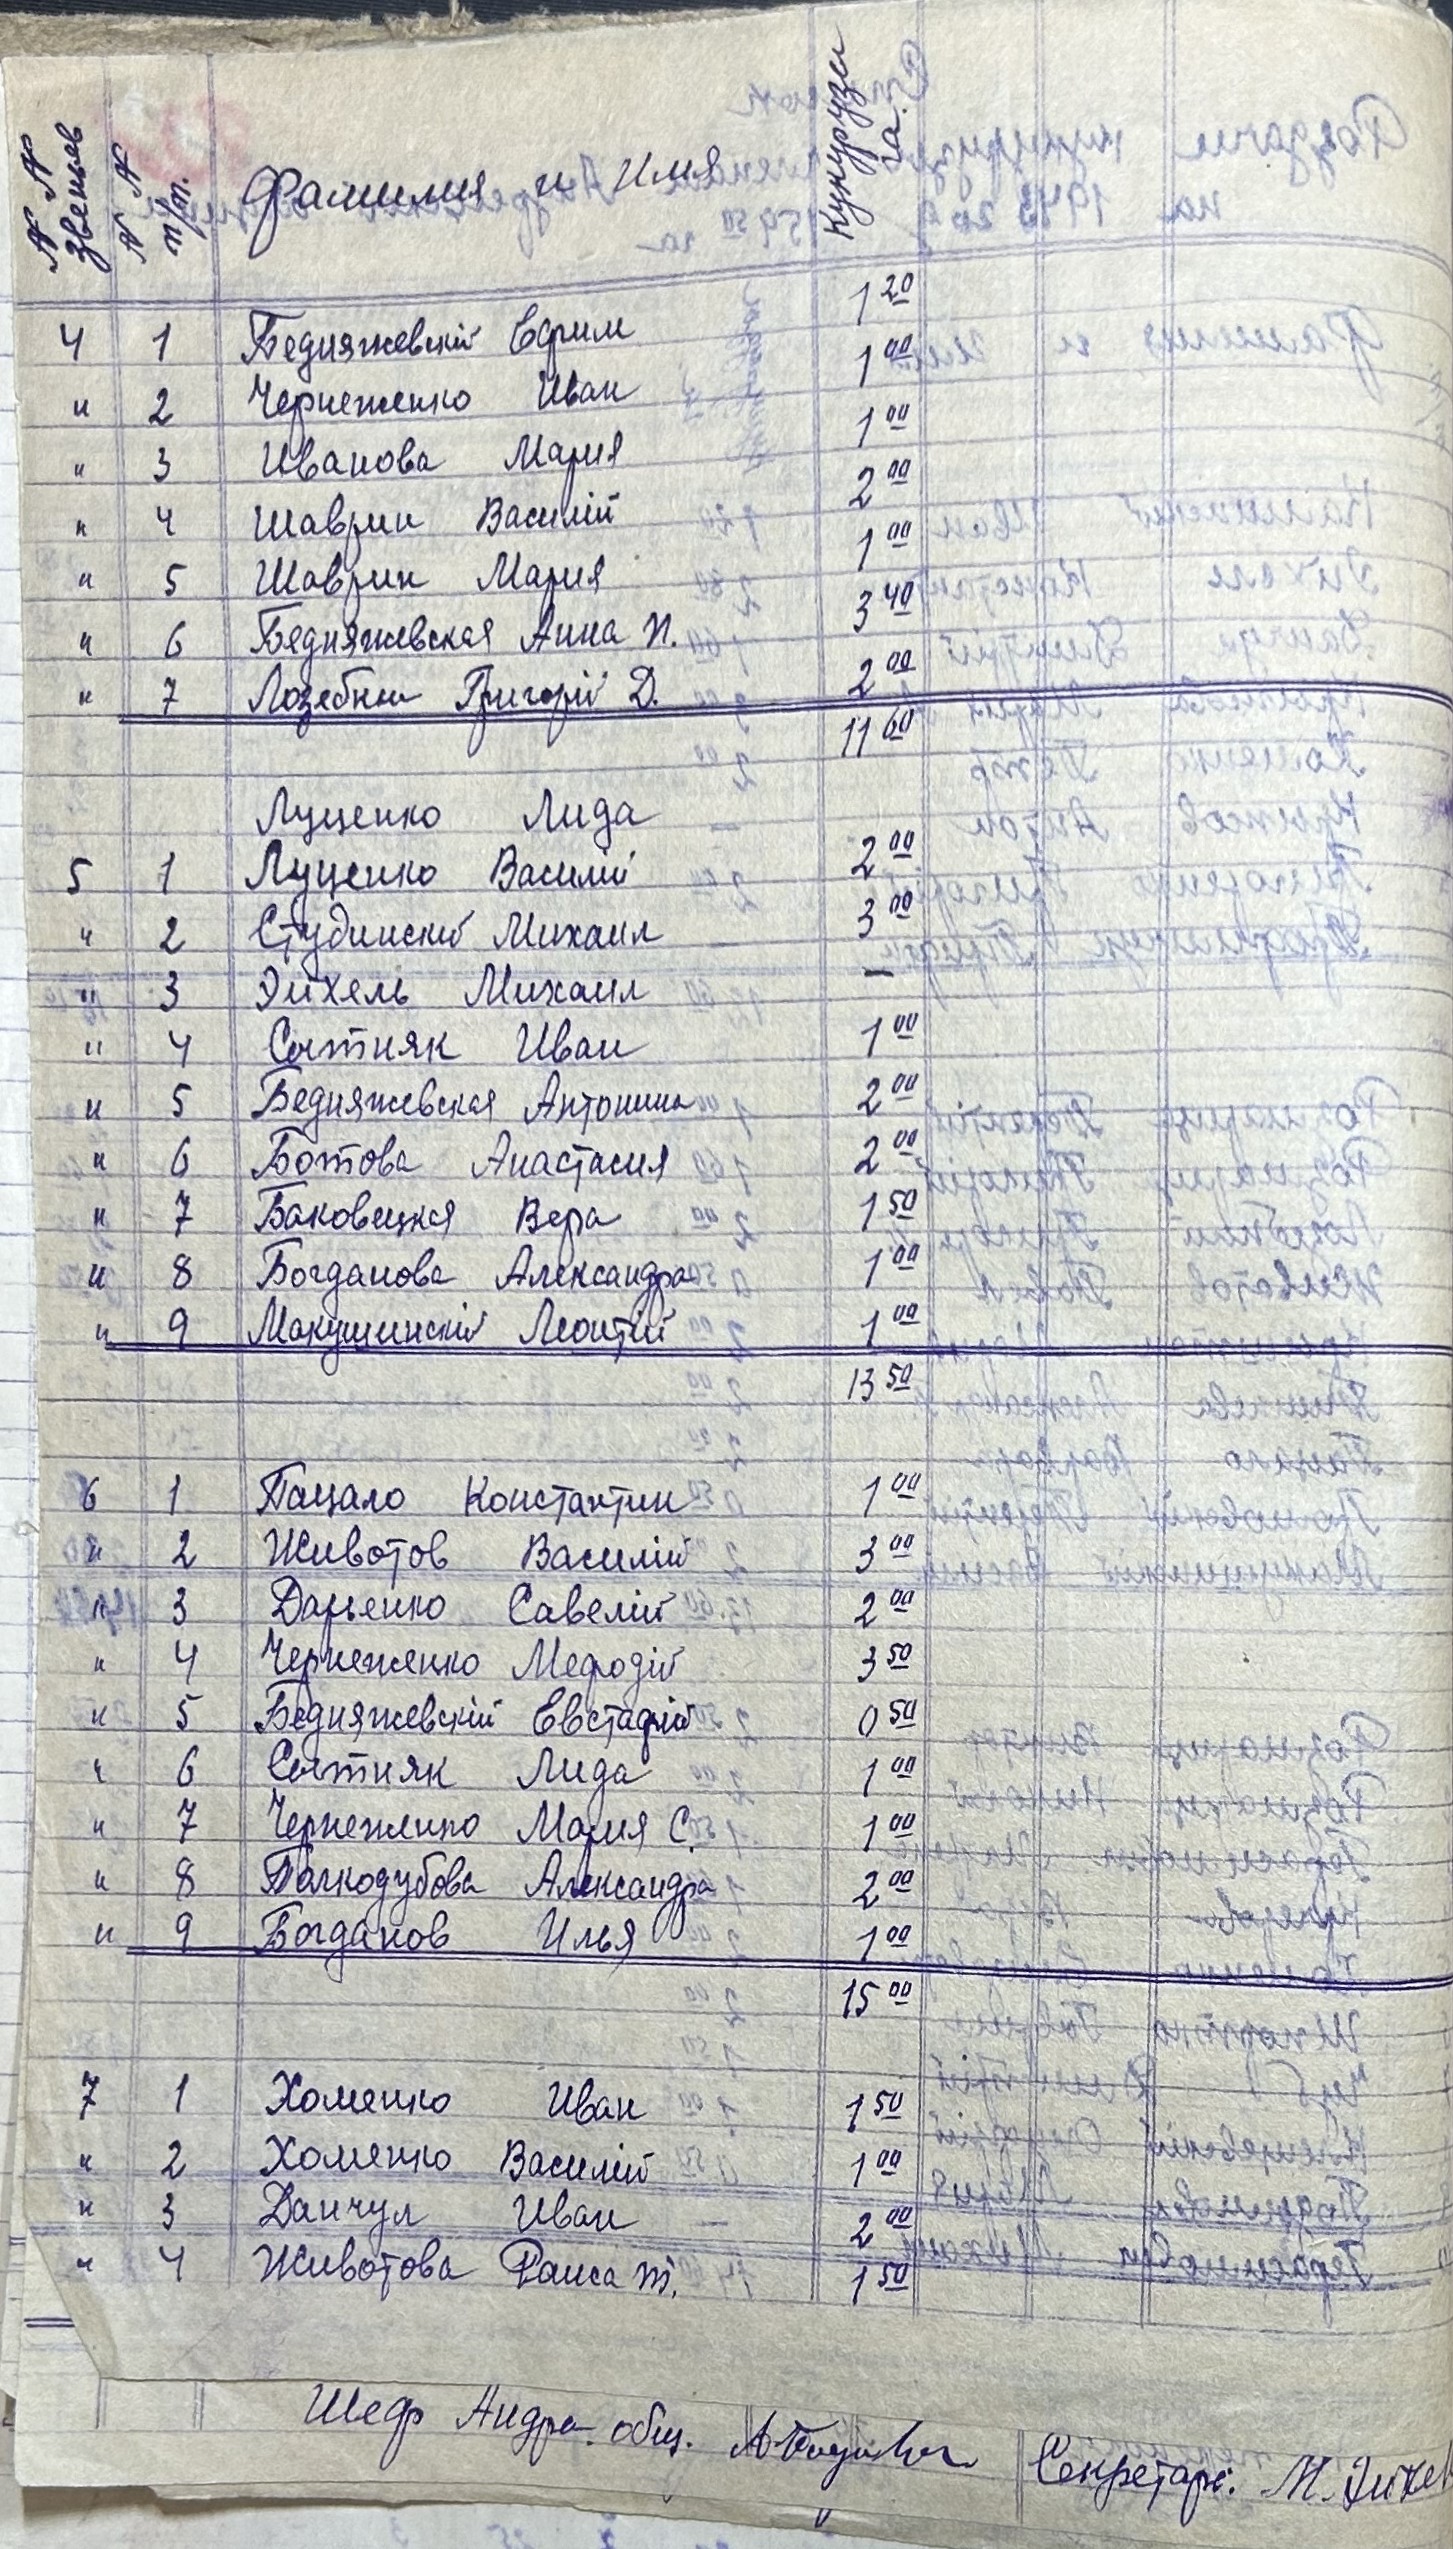 № № Звеньев № № п/п. Фамилия и Имя Кукурузы га.
4 1 Бедняжевскій Ефрим 1 20
" 2 Чернеженко Иван 1 00
" 3 Иванова Мария 1 00
" 4 Шаврин Василій 2 00
" 5 Шаврин Мария 1 00
" 6 Бедняжевская Анна П. 3 40
" 7 Лозебный Григорій Д. 2 00
11 60
Луценко Лида
5 1 Луценко Василій 2 00
" 2 Студинскій Михаил 3 00
" 3 Эйхель Михаил —
" 4 Сытняк Иван 1 00
" 5 Бедняжевская Антонина 2 00
" 6 Ботова Анастасия 2 00
" 7 Баковецкая Вера 1 50
" 8 Богданова Александра 1 00
" 9 Макушинскій Леонтій 1 00
13 50
6 1 Пацало Константин 1 00
" 2 Животов Василій 3 00
" 3 Дарьенко Савелій 2 00
" 4 Чернеженко Мефодій 3 50
" 5 Бедняжевскій Евстафій 0 50
" 6 Сытняк Лида 1 00
" 7 Чернеженко Мария С. 1 00
" 8 Полкодубова Александра 2 00
" 9 Богданов Илья 1 00
15 00
7 1 Хоменко Иван 1 50
" 2 Хоменко Василій 1 00
" 3 Данчул Иван 2 00
" 4 Животова Раиса Т. 1 50
Шеф Андре. общ. Секретарь: М. Эйхель